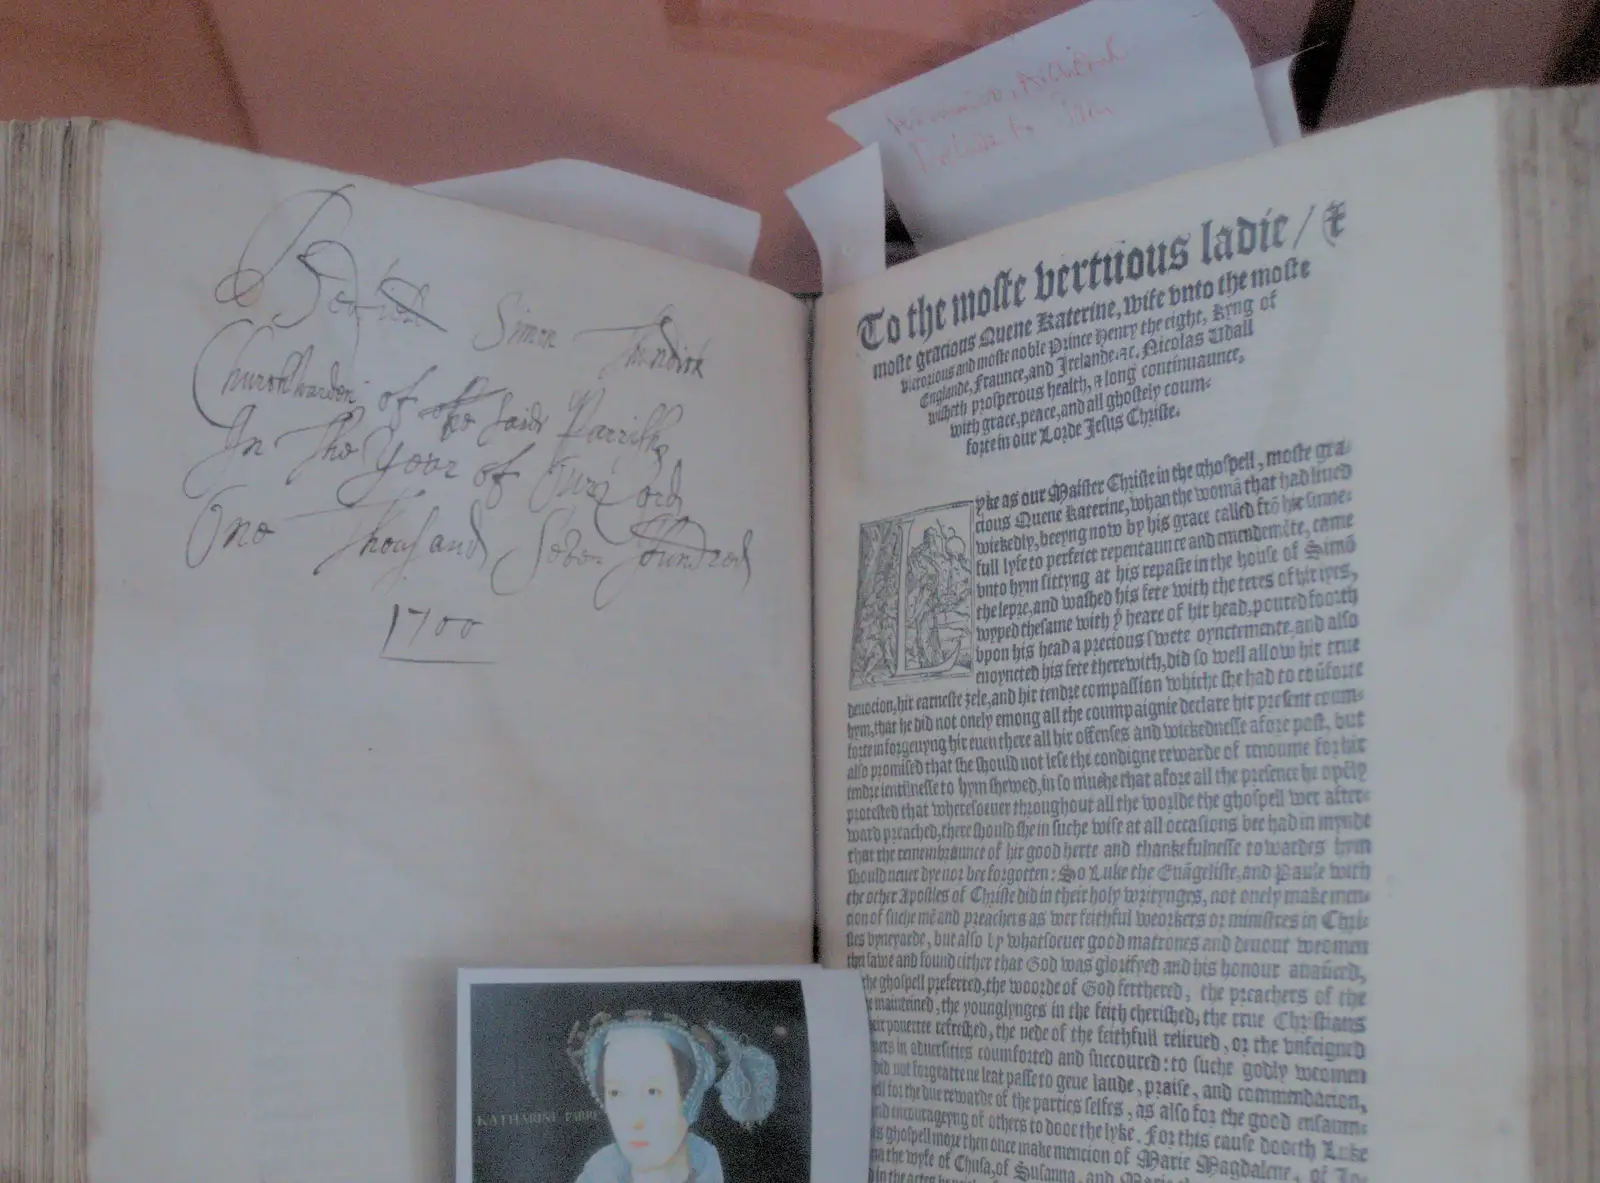 Simon
Churchwarden of the said Parrish
In The Year of Our Lord
One Thousand Seven Hundred
1700
To the moste vertuous ladie / &
moste gracious Quene Katerine, wife vnto the moste
victorious and moste noble Prince Henry the eight, kyng of
Englande, Fraunce, and Irelande. &c. Nicolas Udall
wisheth prosperous health, & long continuaunce,
with grace, peace, and all ghostely coum-
forte in our Lorde Jesus Christe.
Lyke as our Maister Christe in the ghospell, moste gra-
cious Quene Katerine, whan the womã that had liued
wickedly, beeyng now by his grace called frõ hir sinne-
full lyfe to perfect repentaunce and emendemẽte, came
vnto hym sittyng at his repaste in the house of Simõ
the lepre, and washed his fete with the teres of hir iyes,
wyped thesame with ẏ heare of hir head, poured foorth
vpon his head a precious swete oynctemente, and also
enoyncted his fete therewith, did so well allow hir true
deuocion, hir earneste zele, and hir tendre compassion whiche she had to cõforte
hym, that he did not onely emong all the coumpaignie declare hir present coum-
forte in forgeuyng hir euen there all hir offenses and wickednesse afore past, but
also promised that she should not lese the condigne rewarde of renoume for hir
tendre ientilnesse to hym shewed, in so muche that afore all the presence he opẽly
protested that wheresoeuer throughout all the worlde the ghospell wer after-
ward preached, there should she in suche wise at all occasions bee had in mynde
that the remembraunce of hir good herte and thankefulnesse towardes hym
should neuer dye nor bee forgotten: So Luke the Euãgeliste, and Paule with
the other Apostles of Christe did in their holy wrytynges, not onely make men-
cion of suche mẽ and preachers as wer feithful weorkers or ministres in Chri-
stes vyneyarde, but also by whatsoeuer good matrones and deuout weomen
thei sawe and found either that God was glorifyed and his honour auaũced,
the ghospell preferred, the woorde of God ferthered, the preachers of the
maintained, the younglynges in the feith cherished, the true Christians
pouertee refreshed, the nede of the feithfull relieued, or the vnfeigned
in aduersities coumforted and succoured: to suche godly weomen
did not forgeatte ne leat passe to geue laude, praise, and commendacion,
for the due rewarde of the parties selfes, as also for the good ensaum-
encourageyng of others to dooe the lyke. For this cause dooeth Luke
ghospell more then once make mencion of Marie Magdalene, of Jo-
the wyfe of Chusa, of Susanna, and Marie
in the actes
KATHARINE PARRE